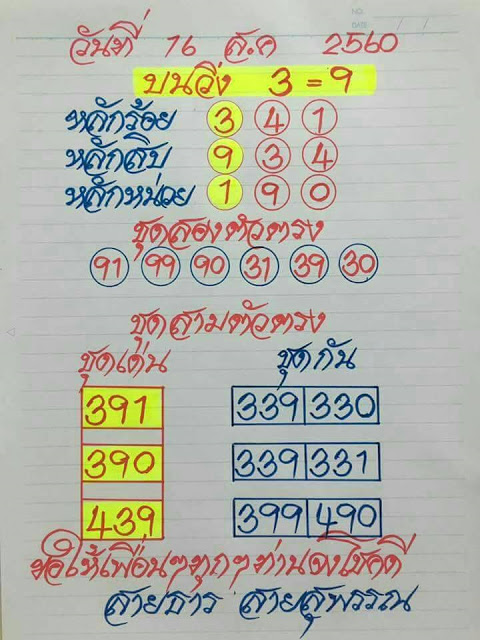 NO.
DATE / /
วันที่ 16 ส.ค 2560
บนวิ่ง 3 = 9
หลักร้อย 3 4 1
หลักสิบ 9 3 4
หลักหน่วย 1 9 0
ชุดสองตัวตรง
91 99 90 31 39 30
ชุดสามตัวตรง
ชุดเด่น ชุดกัน
391 339 330
390 339 331
439 399 490
ขอให้เพื่อนๆทุกๆท่านจงโชคดี
สายธาร สายสุพรรณ